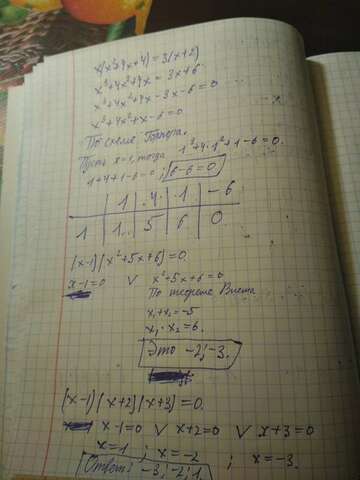 x(x²+4x+4)=3(x+2)
x³+4x²+4x=3x+6
x³+4x²+4x-3x-6=0
x³+4x²+x-6=0
По схеме Горнера.
Пусть x=1, тогда 1³+4·1²+1-6=0.
1+4+1-6=0; 6-6=0
1 4 1 -6
1 1 5 6 0
(x-1)(x²+5x+6)=0.
x-1=0 V x²+5x+6=0
По теореме Виета
x₁+x₂=-5
x₁·x₂=6.
Это -2; -3.
(x-1)(x+2)(x+3)=0.
x-1=0 V x+2=0 V x+3=0
x=1 ; x=-2 ; x=-3.
Ответ: -3; -2; 1.